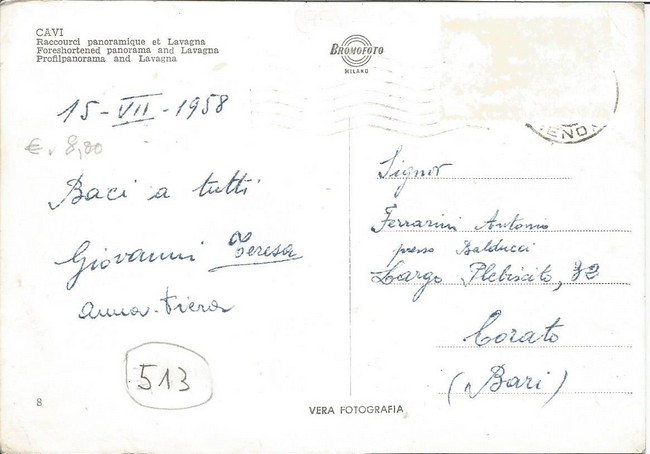 CAVI
Raccourci panoramique et Lavagna
Foreshortened panorama and Lavagna
Profilpanorama and Lavagna
BROMOFOTO
MILANO
15-VII-1958
€ 8,00
Baci a tutti
Giovanni Teresa
Anna
513
8
VERA FOTOGRAFIA
ENO
Signor
Ferrarini Antonio
presso Balducci
Largo Plebiscito, 32
Corato
(Bari)